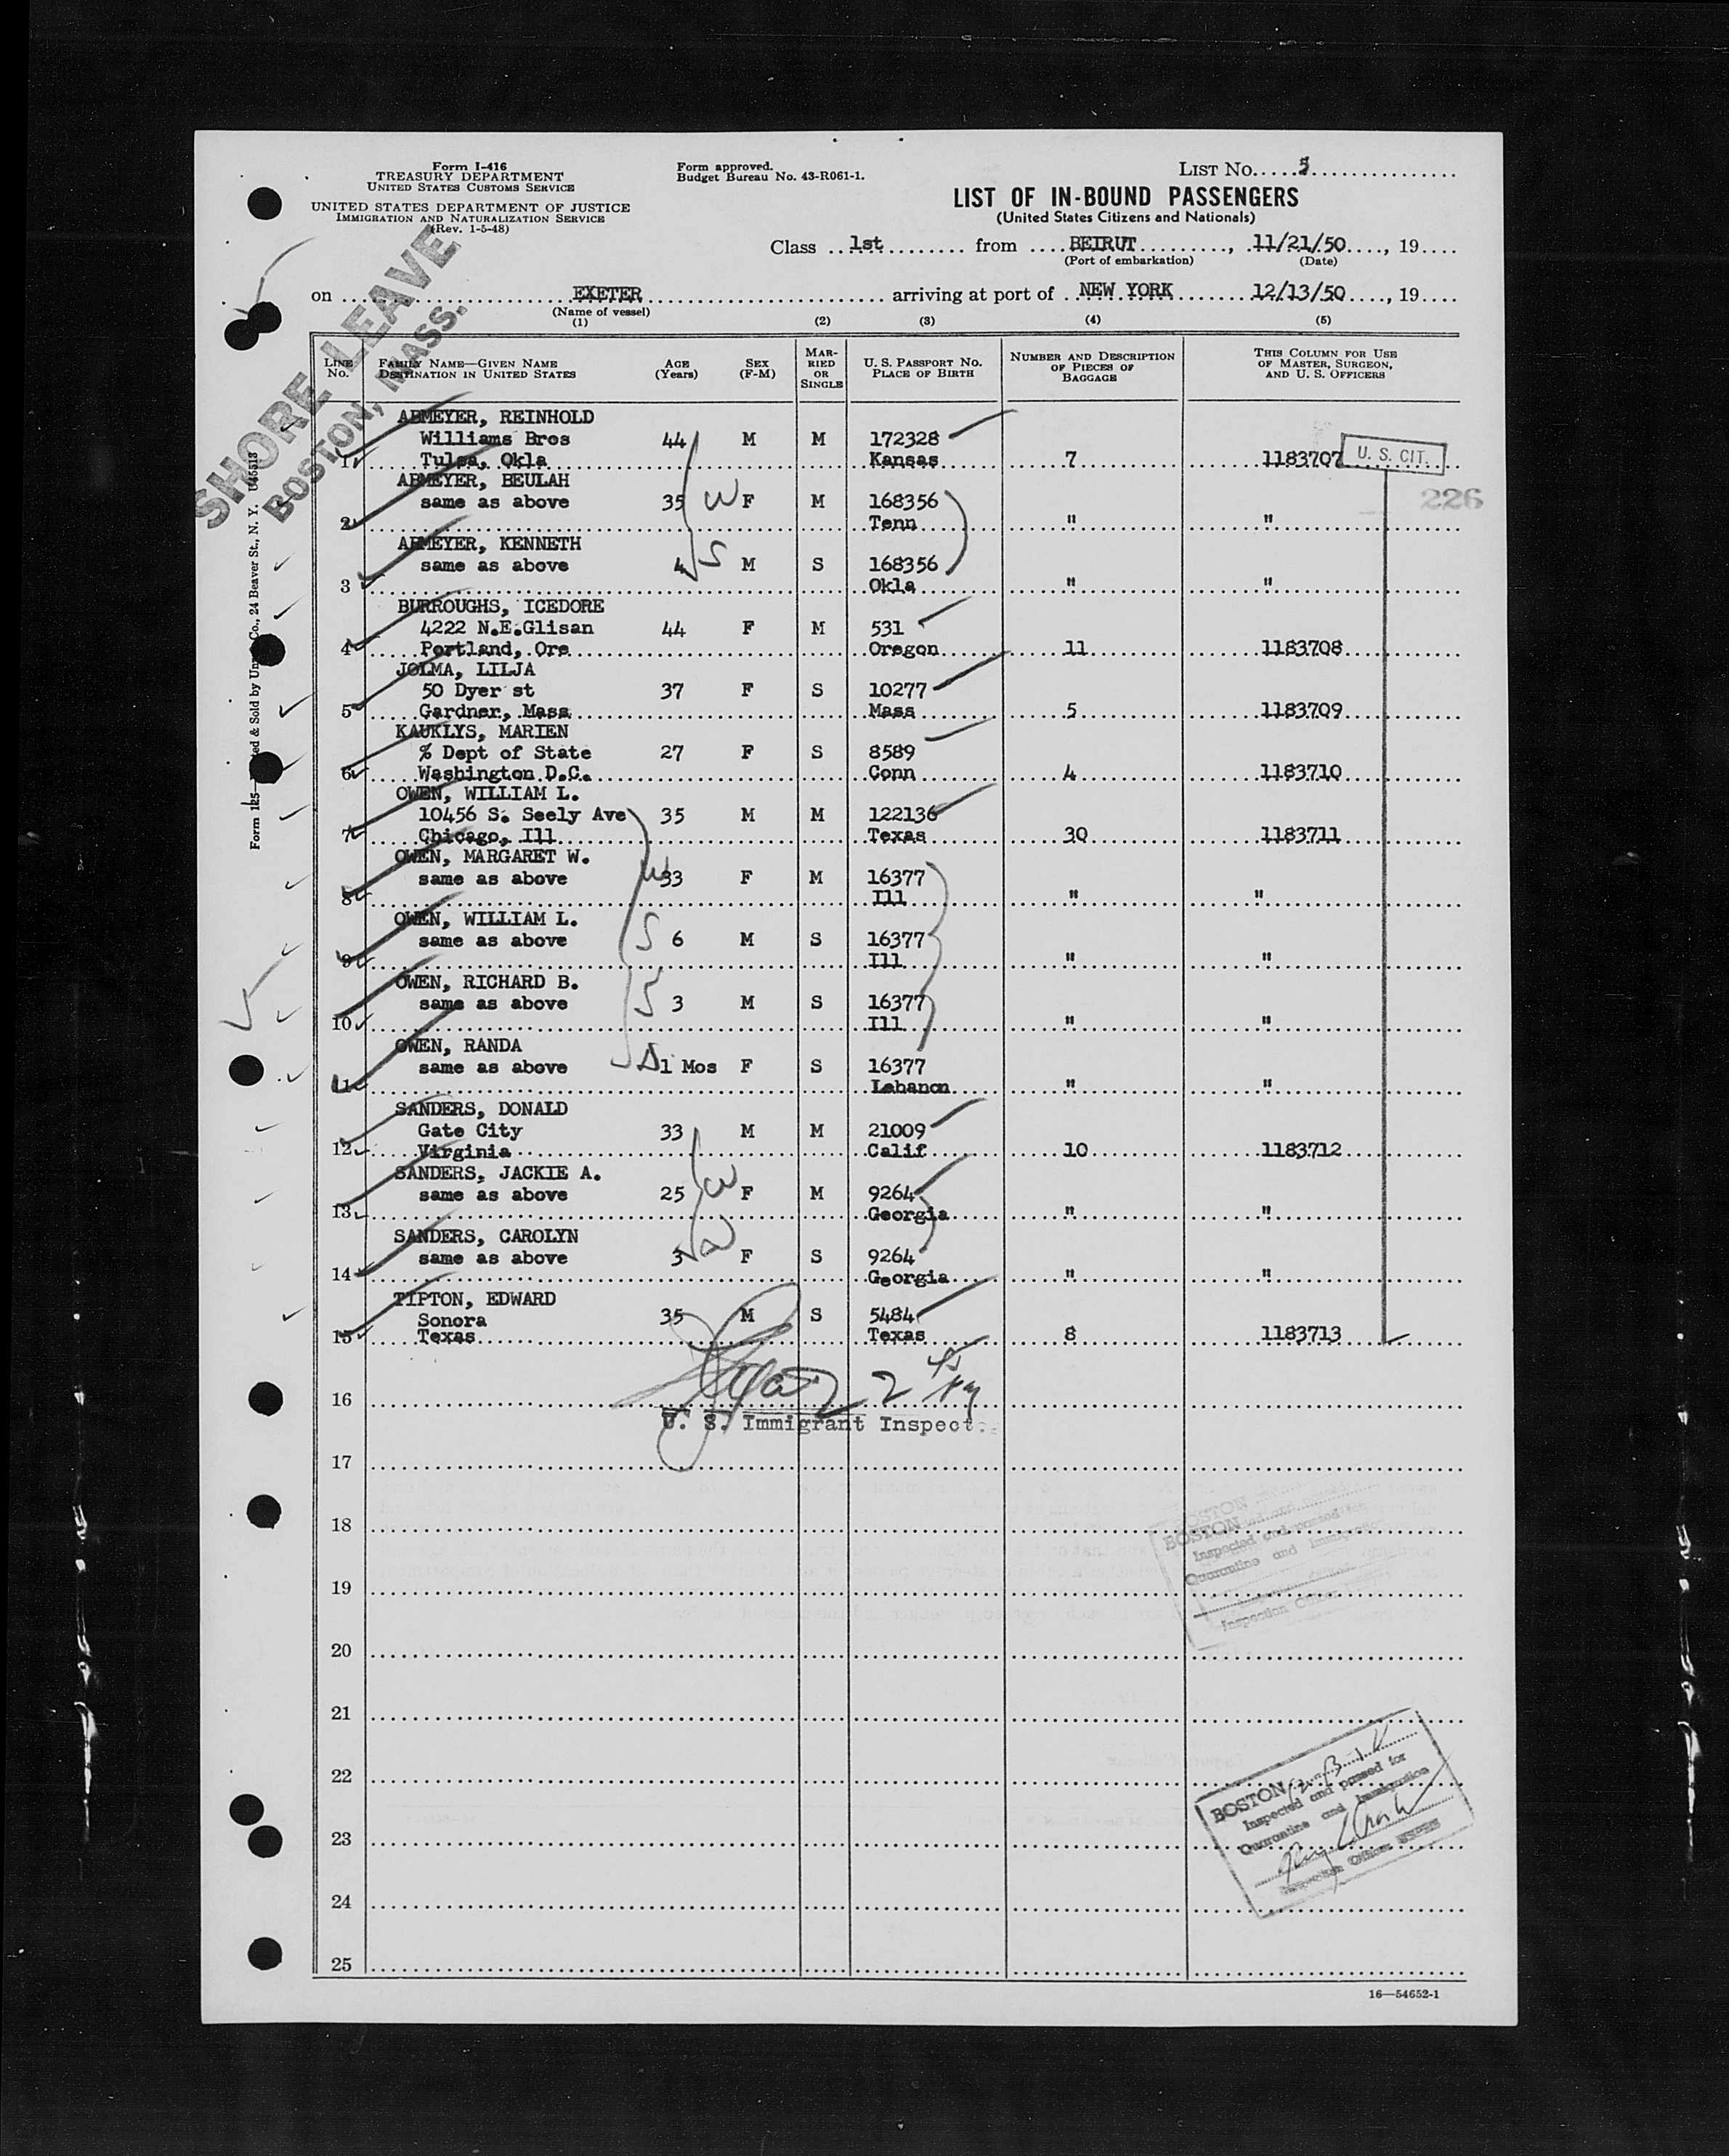 Form I-416
TREASURY DEPARTMENT
UNITED STATES CUSTOMS SERVICE
UNITED STATES DEPARTMENT OF JUSTICE
IMMIGRATION AND NATURALIZATION SERVICE
(Rev. 1-5-48)
Form approved.
Budget Bureau No. 43-R061-1.
LIST No. 5
LIST OF IN-BOUND PASSENGERS
(United States Citizens and Nationals)
Class 1st from BEIRUT, 11/21/50, 19
(Port of embarkation) (Date)
on EXETER arriving at port of NEW YORK 12/13/50, 19
(Name of vessel)
(1) (2) (3) (4) (5)
LINE No. FAMILY NAME—GIVEN NAME DESTINATION IN UNITED STATES AGE (Years) SEX (F-M) MARRIED OR SINGLE U. S. PASSPORT NO. PLACE OF BIRTH NUMBER AND DESCRIPTION OF PIECES OF BAGGAGE THIS COLUMN FOR USE OF MASTER, SURGEON, AND U. S. OFFICERS
SHORE LEAVE
BOSTON, MASS.
ABMEYER, REINHOLD
Williams Bros 44 M M 172328
1 Tulsa, Okla Kansas 7 1183707 U. S. CIT.
ABMEYER, BEULAH
same as above 35 W F M 168356 226
2 Tenn " "
ABMEYER, KENNETH
same as above 4 S M S 168356
3 Okla " "
BURROUGHS, ICEDORE
4222 N.E.Glisan 44 F M 531
4 Portland, Ore Oregon 11 1183708
JOLMA, LILJA
50 Dyer st 37 F S 10277
5 Gardner, Mass Mass 5 1183709
KAUKLYS, MARIEN
% Dept of State 27 F S 8589
6 Washington D.C. Conn 4 1183710
OWEN, WILLIAM L.
10456 S. Seely Ave 35 M M 122136
7 Chicago, Ill Texas 30 1183711
OWEN, MARGARET W.
same as above W 33 F M 16377
8 Ill " "
OWEN, WILLIAM L.
same as above S 6 M S 16377
9 Ill " "
OWEN, RICHARD B.
same as above S 3 M S 16377
10 Ill " "
OWEN, RANDA
same as above 1 Mos F S 16377
11 Lebanon " "
SANDERS, DONALD
Gate City 33 M M 21009
12 Virginia Calif 10 1183712
SANDERS, JACKIE A.
same as above 25 W F M 9264
13 Georgia " "
SANDERS, CAROLYN
same as above 3 F S 9264
14 Georgia " "
TIPTON, EDWARD
Sonora 35 M S 5484
15 Texas Texas 8 1183713
16
U. S. Immigrant Inspect.
17
18
BOSTON
Inspected and passed
Quarantine and Immigration
Inspection Officer
19
20
21
22
BOSTON
Inspected and passed for
Quarantine and Immigration
Inspection Officer USPHS
23
24
25
16—54652-1
Form 125— ed & Sold by Unz Co., 24 Beaver St., N. Y.